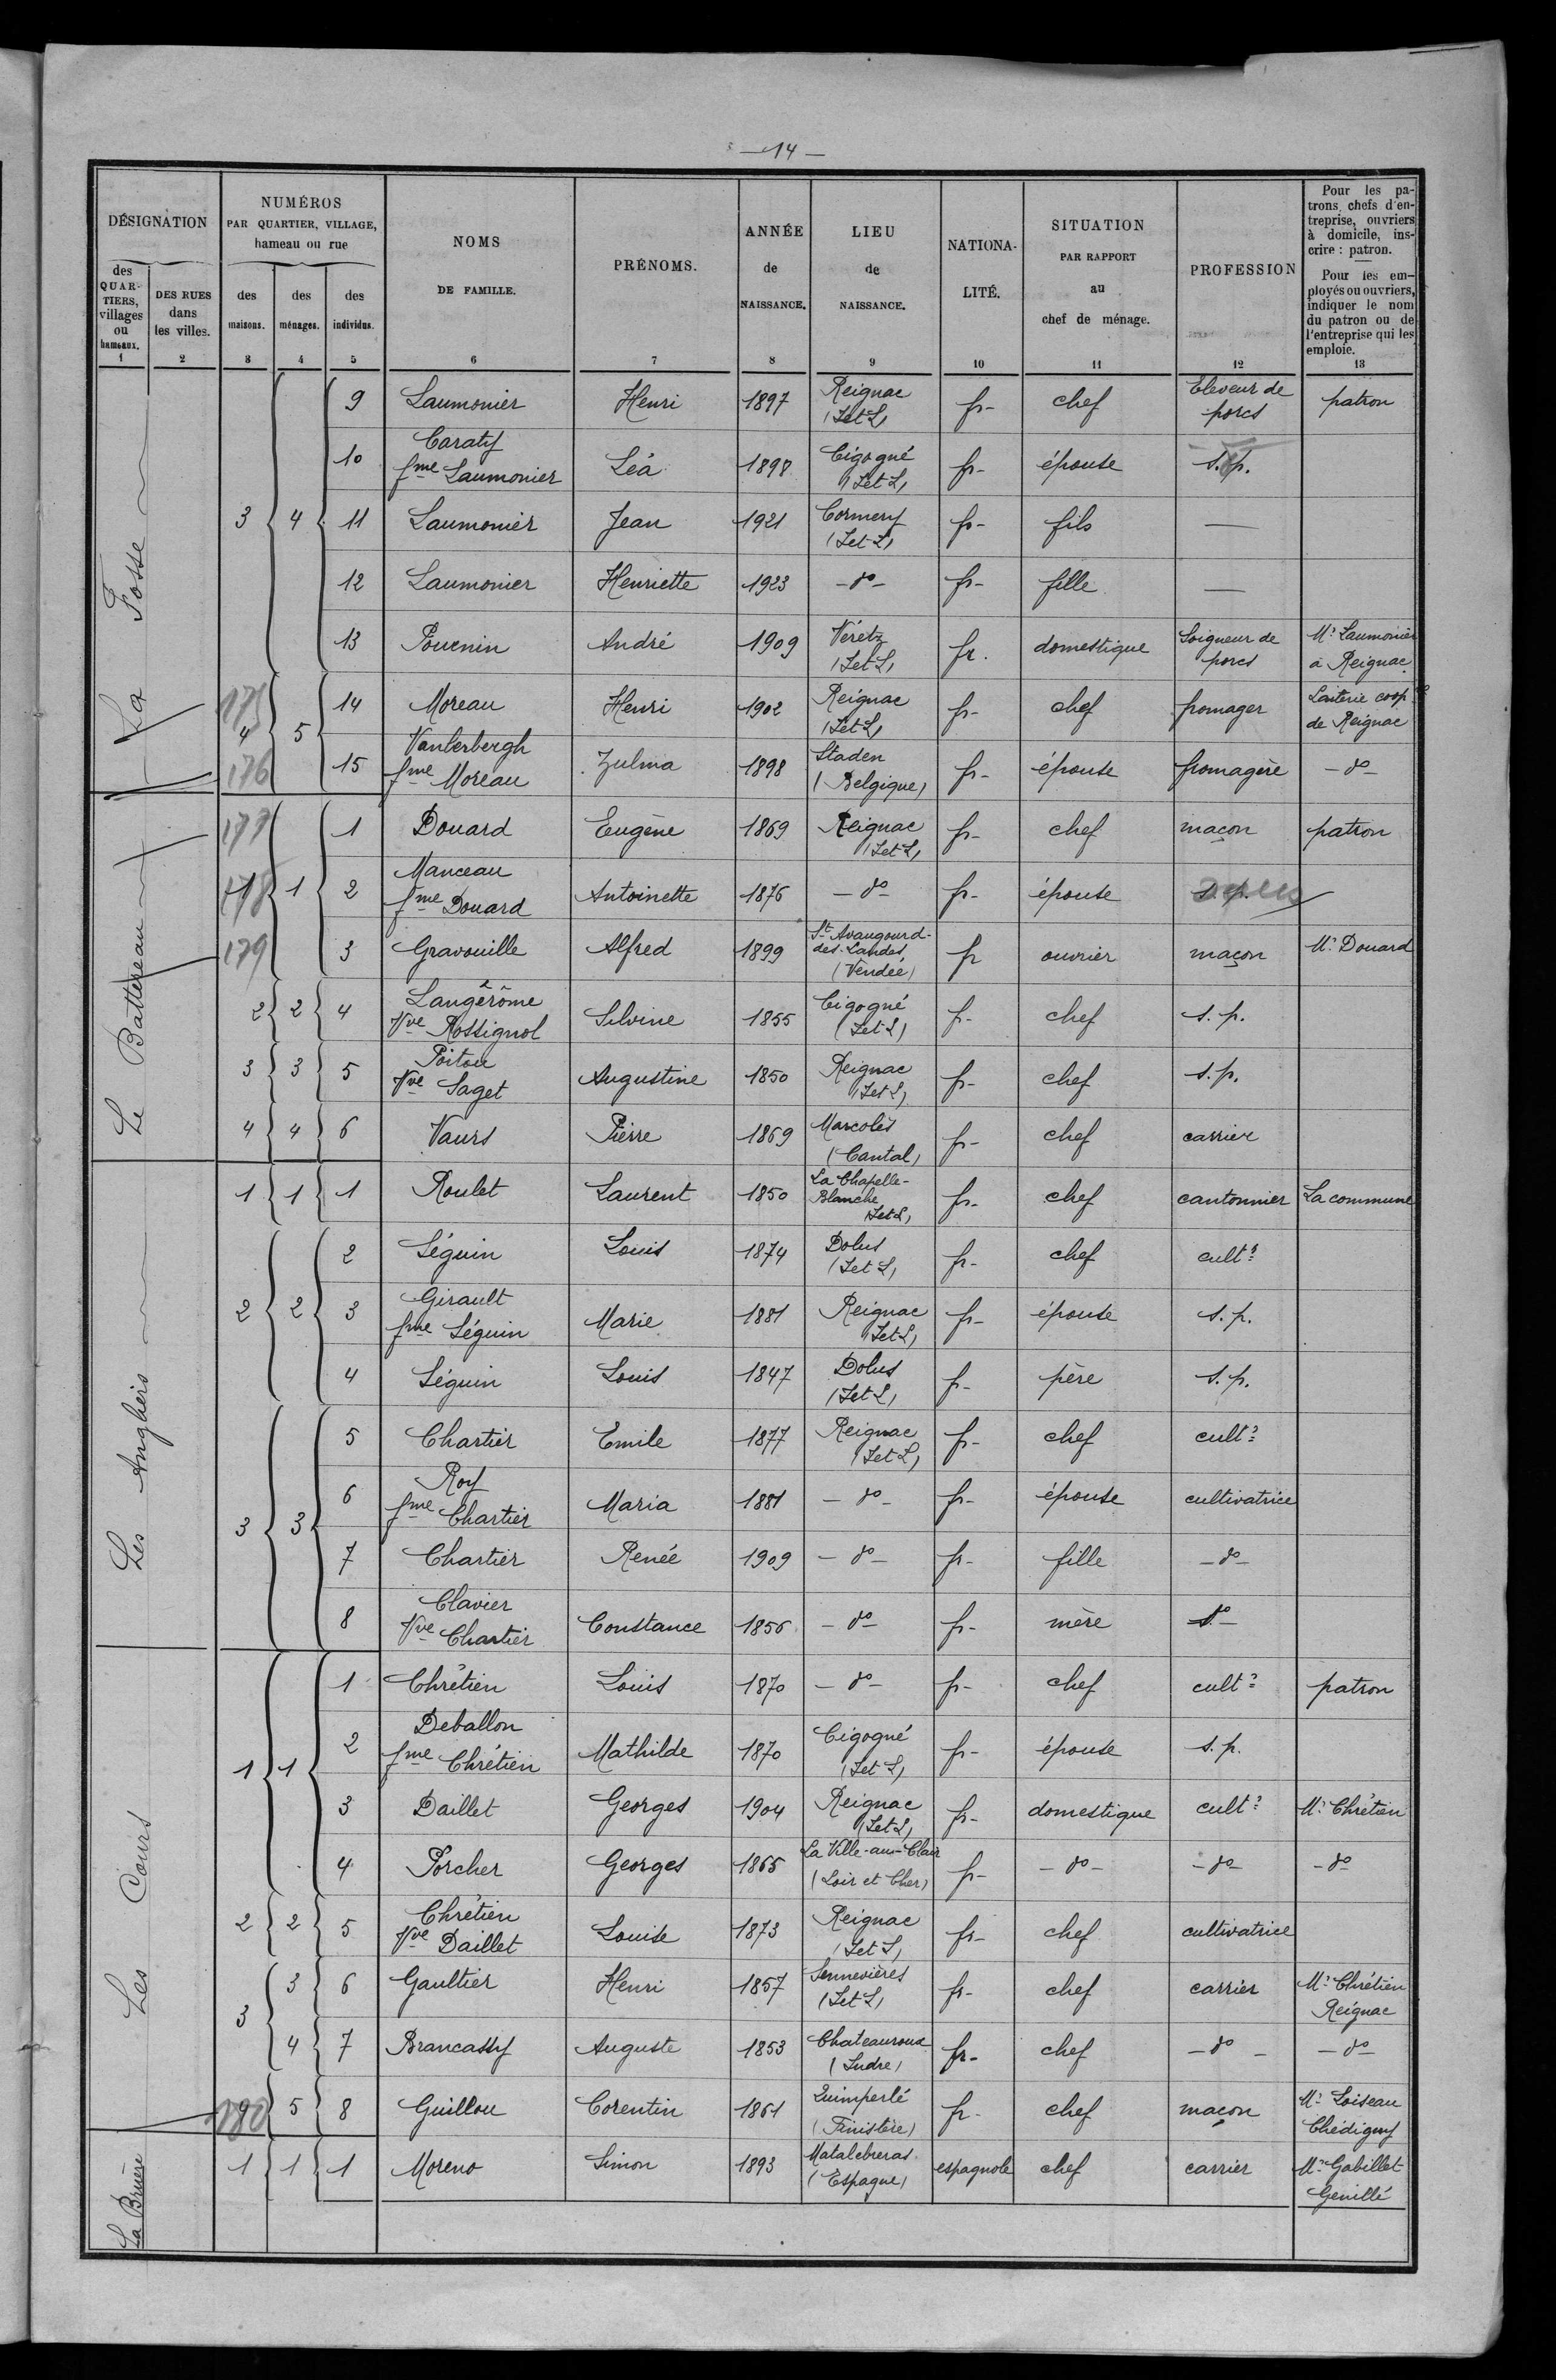 — 14 —
DÉSIGNATION
des QUARTIERS, villages ou hameaux. 1
DES RUES dans les villes. 2
NUMÉROS PAR QUARTIER, VILLAGE, hameau ou rue
des maisons. 3
des ménages. 4
des individus. 5
NOMS DE FAMILLE. 6
PRÉNOMS. 7
ANNÉE de NAISSANCE. 8
LIEU de NAISSANCE. 9
NATIONALITÉ. 10
SITUATION PAR RAPPORT au chef de ménage. 11
PROFESSION 12
Pour les patrons, chefs d'entreprise, ouvriers à domicile, inscrire : patron.
Pour les employés ou ouvriers, indiquer le nom du patron ou de l'entreprise qui les emploie. 13
La Fosse
9 Laumonier Henri 1897 Reignac (I et L) fr- chef Eleveur de porcs patron
10 Caraty fme Laumonier Léa 1898 Cigogné (I et L) fr- épouse s.p.
3 4 11 Laumonier Jean 1921 Cormery (I et L) fr- fils —
12 Laumonier Henriette 1923 -do- fr- fille —
13 Poucnin André 1909 Véretz (I et L) fr. domestique Soigneur de porcs Mr Laumonier à Reignac
175 4 5 14 Moreau Henri 1902 Reignac (I et L) fr- chef fromager Laiterie coop. de Reignac
176 15 Vanterbergh fme Moreau Zulma 1898 Staden (Belgique) fr- épouse fromagère -do-
Le Battereau
177 1 Douard Eugène 1869 Reignac (I et L) fr- chef maçon patron
178 1 1 2 Manceau fme Douard Antoinette 1876 -do- fr- épouse s.p.
179 3 Gravouille Alfred 1899 St Avaugourd-des-Landes (Vendée) fr ouvrier maçon Mr Douard
2 2 4 Langérôme Vve Rossignol Silvine 1855 Cigogné (I et L) fr- chef s.p.
3 3 5 Poitou Vve Saget Augustine 1850 Reignac (I et L) fr- chef s.p.
4 4 6 Vaurs Pierre 1869 Marcolès (Cantal) fr- chef carrier
Les Anghiers
1 1 1 Roulet Laurent 1850 La Chapelle-Blanche (I et L) fr- chef cantonnier La commune
2 Séguin Louis 1874 Dolus (I et L) fr- chef cultr
2 2 3 Girault fme Séguin Marie 1881 Reignac (I et L) fr- épouse s.p.
4 Séguin Louis 1847 Dolus (I et L) fr- père s.p.
5 Chartier Emile 1877 Reignac (I et L) fr- chef cultr
3 3 6 Roy fme Chartier Maria 1881 -do- fr- épouse cultivatrice
7 Chartier Renée 1909 -do- fr- fille -do-
8 Clavier Vve Chartier Constance 1856 -do- fr- mère do-
Les Cours
1 Chrétien Louis 1870 -do- fr- chef cultr patron
1 1 2 Deballon fme Chrétien Mathilde 1870 Cigogné (I et L) fr- épouse s.p.
3 Daillet Georges 1904 Reignac (I et L) fr- domestique cultr Mr Chrétien
4 Porcher Georges 1865 La Ville-aux-Clair (Loir et Cher) fr- -do- -do- -do-
2 2 5 Chrétien Vve Daillet Louise 1873 Reignac (I et L) fr- chef cultivatrice
3 3 6 Gaultier Henri 1857 Sennevières (I et L) fr- chef carrier Mr Chrétien Reignac
4 7 Brancassy Auguste 1853 Chateauroux (Indre) fr- chef -do- -do-
180 5 8 Guillou Corentin 1861 Quimperlé (Finistère) fr- chef maçon Mr Loiseau Chédigny
La Bruère
1 1 1 Moreno Simon 1893 Matalebreras (Espagne) espagnole chef carrier Mr Gabillet Genillé